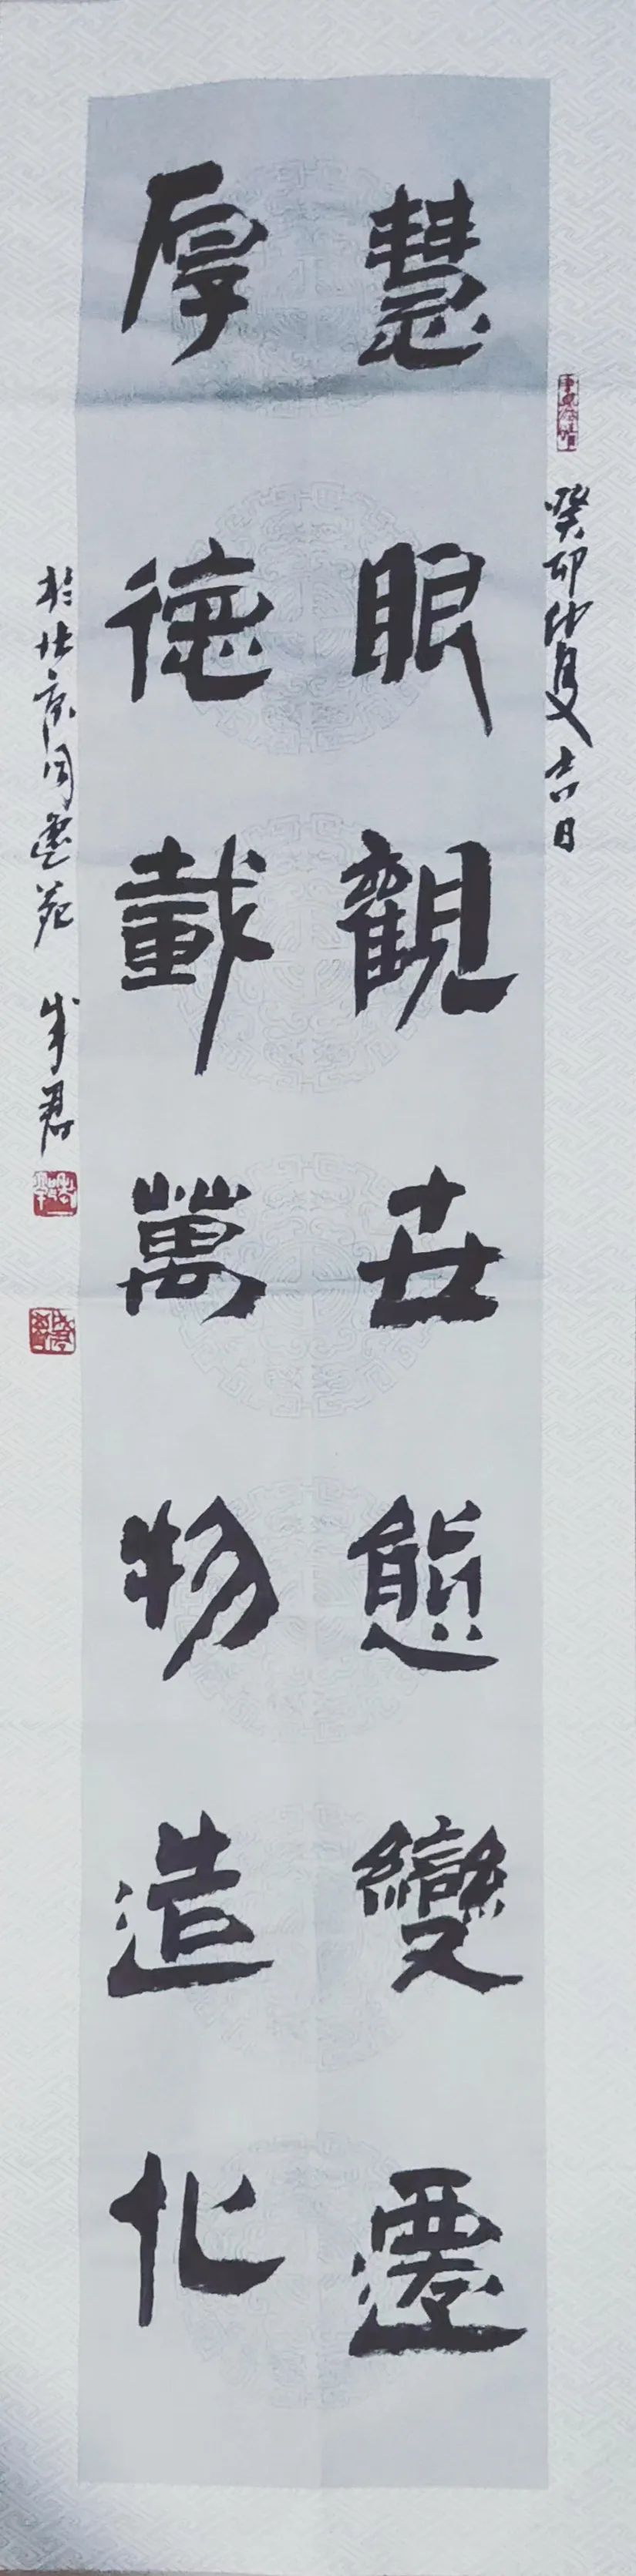 癸卯仲夏吉日
慧眼觀世態變遷
厚德載萬物造化
於北京同蓮苑 成君